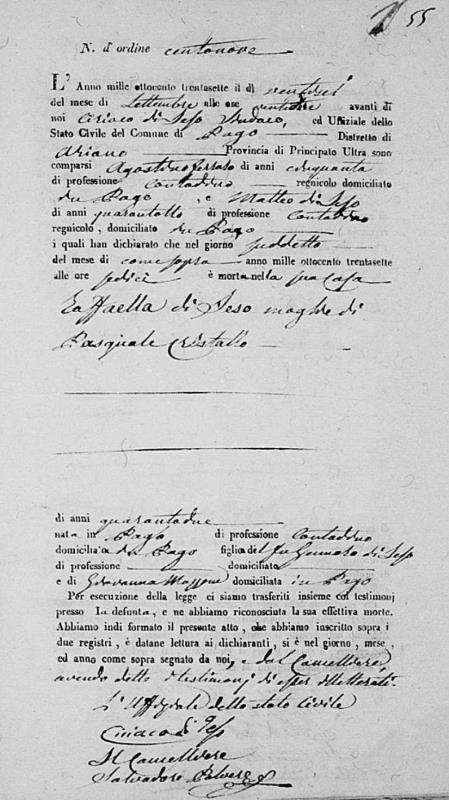 55
N. d'ordine centonove
L'Anno mille ottocento trentasette il dì ventisei
del mese di Settembre alle ore ventidue avanti di
noi Ciriaco di Jeso Sindaco, ed Uffiziale dello
Stato Civile del Comune di Pago Distretto di
Ariano Provincia di Principato Ultra sono
comparsi Agostino di anni cinquanta
di professione Contadino regnicolo domiciliato
in Pago, e Matteo di Jeso
di anni quarantotto di professione Contadino
regnicolo, domiciliato in Pago
i quali han dichiarato che nel giorno suddetto
del mese di come sopra anno mille ottocento trentasette
alle ore sedici è morta nella sua casa
Raffaella di Jeso moglie di
Pasquale Cristallo
di anni quarantadue
nata in Pago di professione Contadina
domiciliata in Pago figlia del fu Gennaro di Jeso
di professione domiciliato
e di Giovanna Mazzone domiciliata in Pago
Per esecuzione della legge ci siamo trasferiti insieme coi testimonj
presso la defunta, e ne abbiamo riconosciuta la sua effettiva morte.
Abbiamo indi formato il presente atto, che abbiamo inscritto sopra i
due registri, è datane lettura ai dichiaranti, si è nel giorno, mese,
ed anno come sopra segnato da noi, e dal Cancelliere,
avendo detto i testimonj di esser illetterati.
L'Uffiziale dello stato Civile
Ciriaco di Jeso
Il Cancelliere
Salvadore Polvere